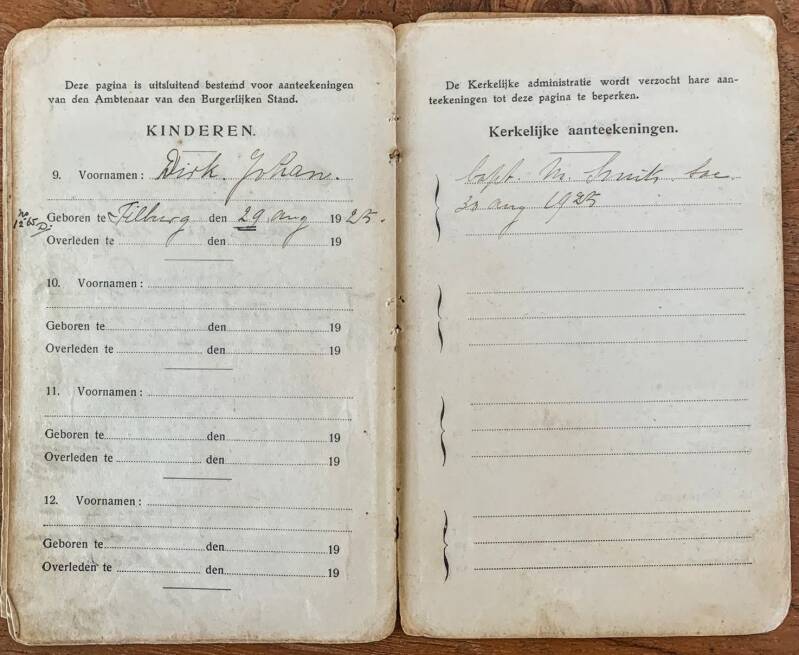 Deze pagina is uitsluitend bestemd voor aanteekeningen
van den Ambtenaar van den Burgerlijken Stand.
KINDEREN.
9. Voornamen: Dirk. Johan.
Geboren te Tilburg den 29 aug 1925.
no 1265
Overleden te den 19
10. Voornamen:
Geboren te den 19
Overleden te den 19
11. Voornamen:
Geboren te den 19
Overleden te den 19
12. Voornamen:
Geboren te den 19
Overleden te den 19
De Kerkelijke administratie wordt verzocht hare aan-
teekeningen tot deze pagina te beperken.
Kerkelijke aanteekeningen.
bapt. M. Smits
30 aug 1925